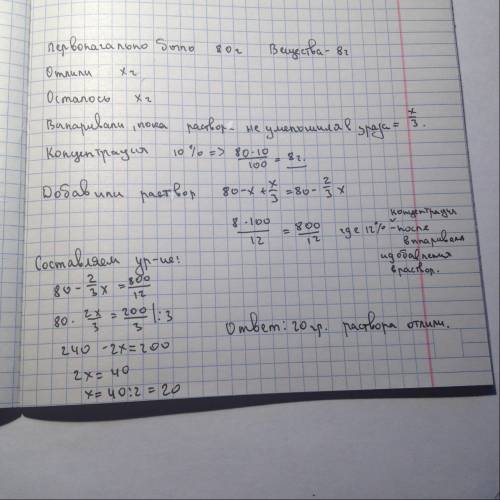 Первоначально было 80 г Вещества - 8 г
Отлили x г
Осталось x г
Выпаривали, пока раствор не уменьшился в 3 раза = x/3.
Концентрация 10% => 80·10/100 = 8 г.
Добавили раствор 80-x+x/3=80-2/3 x
8·100/12 = 800/12 где 12% - концентрация после выпаривания
и добавления
в раствор.
Составляем ур-ие:
80 - 2/3 x = 800/12
80· 2x/3 = 200/3 |:3
240 - 2x = 200
2x = 40
x = 40:2 = 20
Ответ: 20 гр. раствора отлили.